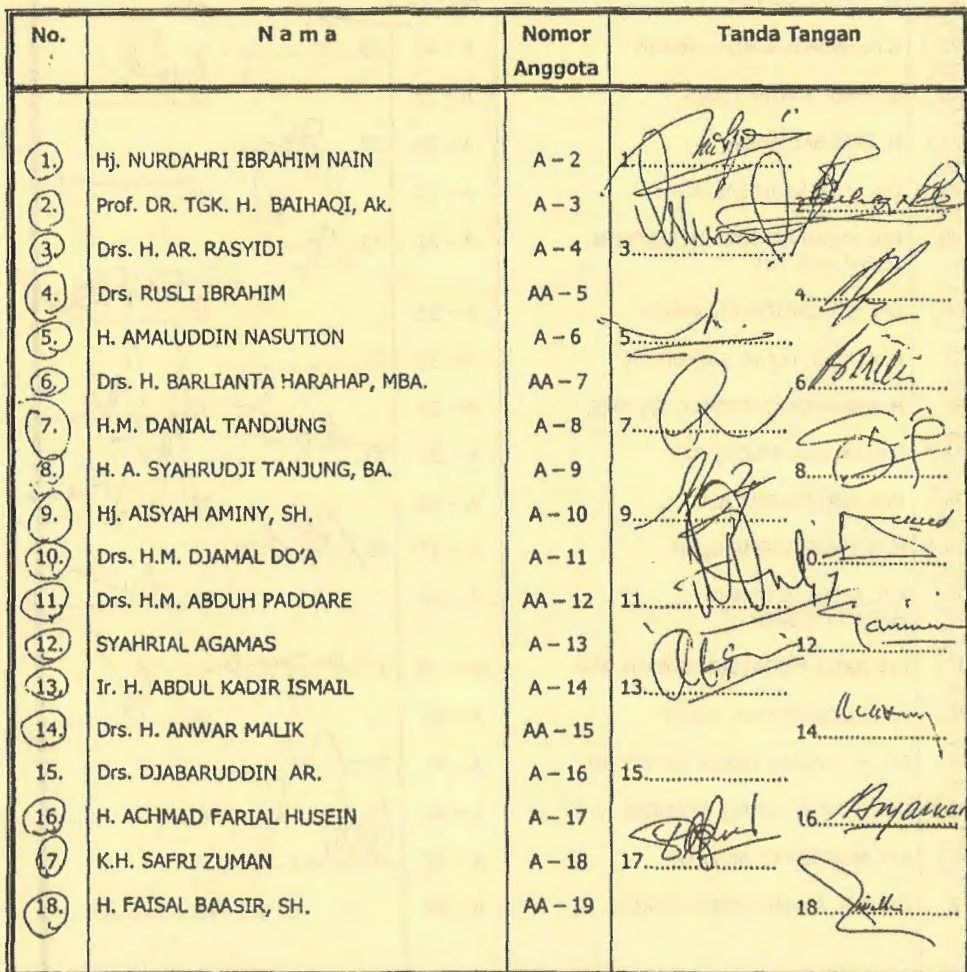 No. N a m a Nomor Anggota Tanda Tangan
1. Hj. NURDAHRI IBRAHIM NAIN A – 2 1..........
2. Prof. DR. TGK. H. BAIHAQI, Ak. A – 3 2..........
3. Drs. H. AR. RASYIDI A – 4 3..........
4. Drs. RUSLI IBRAHIM AA – 5 4..........
5. H. AMALUDDIN NASUTTON A – 6 5..........
6. Drs. H. BARLIANTA HARAHAP, MBA. AA – 7 6..........
7. H.M. DANIAL TANDJUNG A – 8 7..........
8. H. A. SYAHRUDJI TANJUNG, BA. A – 9 8..........
9. Hj. AISYAH AMINY, SH. A – 10 9..........
10. Drs. H.M. DJAMAL DO'A A – 11 10..........
11. Drs. H.M. ABDUH PADDARE AA – 12 11..........
12. SYAHRIAL AGAMAS A – 13 12..........
13. Ir. H. ABDUL KADIR ISMAIL A – 14 13..........
14. Drs. H. ANWAR MALIK AA – 15 14..........
15. Drs. DJABARUDDIN AR. A – 16 15..........
16. H. ACHMAD FARIAL HUSEIN A – 17 16..........
17. K.H. SAFRI ZUMAN A – 18 17..........
18. H. FAISAL BAASIR, SH. AA – 19 18..........